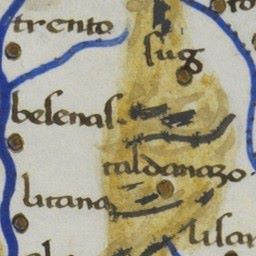 trento
sug
belenas.
caldanazo.
litana
lisar